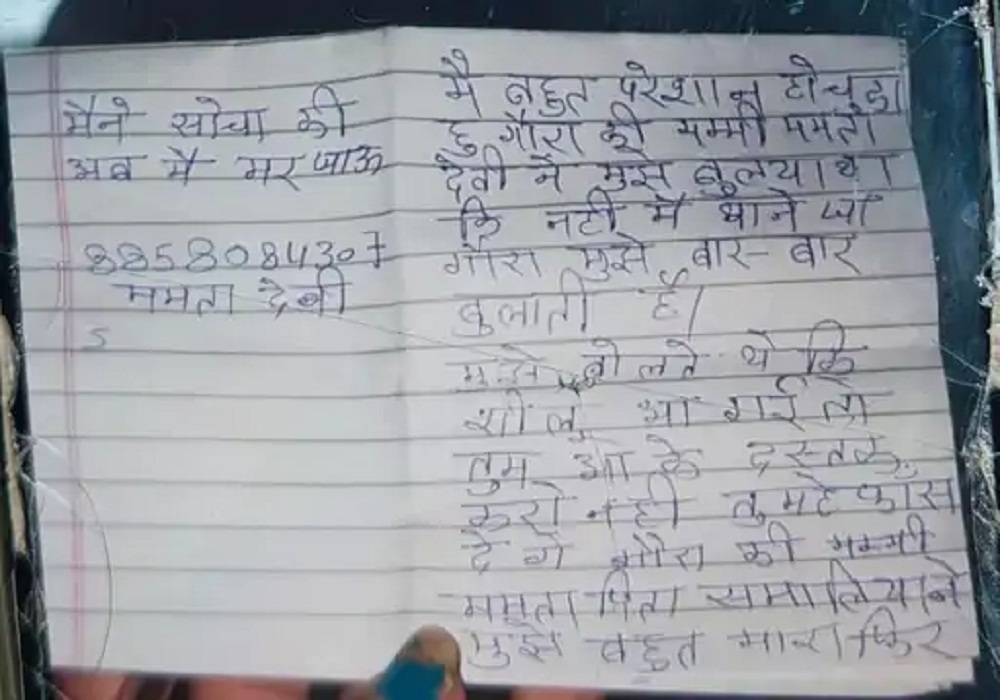 मै बहुत परेशान हो चुका
हु गौरा की मम्मी ममता
देवी ने मुझे बुलया था
कि नटी मै थाने जा
गौरा मुझे बार-बार
बुलाती है।
मुझे बोलते थे कि
आ गई तो
तुम आ के दस्तक
करो नही तुमहे फास
दे गे गौरा की मम्मी
ममता पिता समालिया ने
मुझे बहुत मारा फिर
मैने सोचा की
अब मै मर जाऊ
8858084307
ममता देवी
S